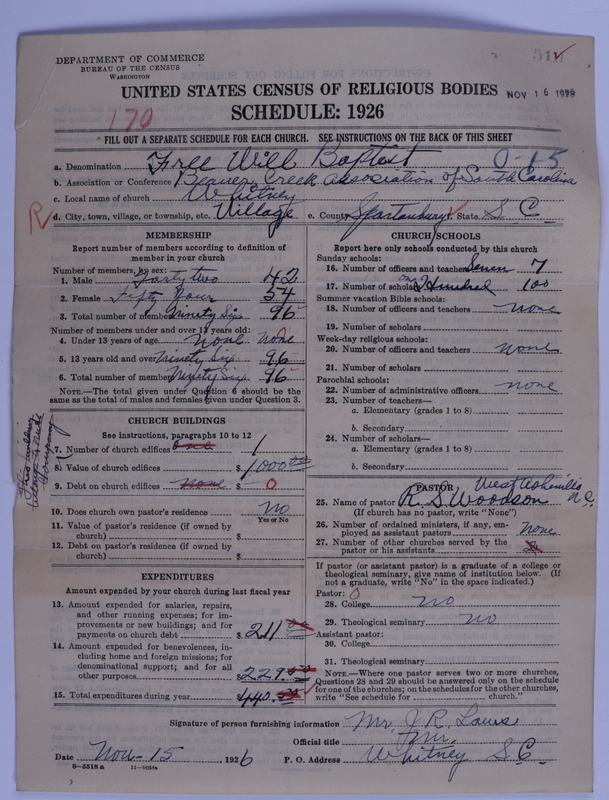 DEPARTMENT OF COMMERCE
BUREAU OF THE CENSUS
WASHINGTON
UNITED STATES CENSUS OF RELIGIOUS BODIES
NOV 16 1926
SCHEDULE: 1926
170
FILL OUT A SEPARATE SCHEDULE FOR EACH CHURCH. SEE INSTRUCTIONS ON THE BACK OF THIS SHEET
a. Denomination Free Will Baptist 0-15
b. Association or Conference Beaver Creek Association of South Carolina
c. Local name of church Whitney
R
d. City, town, village, or township, etc. Village e. County Spartanburg f. State S C
MEMBERSHIP
Report number of members according to definition of
member in your church
Number of members, by sex:
1. Male Forty two 42
2. Female Fifty Four 54
3. Total number of members Ninety Six 96
Number of members under and over 13 years old:
4. Under 13 years of age none none
5. 13 years old and over Ninety Six 96
6. Total number of members Ninety Six 96
NOTE.—The total given under Question 6 should be the
same as the total of males and females given under Question 3.
CHURCH BUILDINGS
See instructions, paragraphs 10 to 12
7. Number of church edifices one 1
8. Value of church edifices $ 1000.00
9. Debt on church edifices none $ 0
10. Does church own pastor's residence? no
Yes or No
11. Value of pastor's residence (if owned by
church) $
12. Debt on pastor's residence (if owned by
church) $
EXPENDITURES
Amount expended by your church during last fiscal year
13. Amount expended for salaries, repairs,
and other running expenses; for im-
provements or new buildings; and for
payments on church debt $ 211
14. Amount expended for benevolences, in-
cluding home and foreign missions; for
denominational support; and for all
other purposes $ 229
15. Total expenditures during year $ 440
CHURCH SCHOOLS
Report here only schools conducted by this church
Sunday schools:
16. Number of officers and teachers Seven 7
17. Number of scholars one Hundred 100
Summer vacation Bible schools:
18. Number of officers and teachers none
19. Number of scholars
Week-day religious schools:
20. Number of officers and teachers none
21. Number of scholars
Parochial schools:
22. Number of administrative officers none
23. Number of teachers—
a. Elementary (grades 1 to 8)
b. Secondary
24. Number of scholars—
a. Elementary (grades 1 to 8)
b. Secondary
PASTOR West Asheville
25. Name of pastor R. S. Woodson N.C.
(If church has no pastor, write "None")
26. Number of ordained ministers, if any, em-
ployed as assistant pastors none
27. Number of other churches served by the
pastor or his assistants
If pastor (or assistant pastor) is a graduate of a college or
theological seminary, give name of institution below. (If
not a graduate, write "No" in the space indicated.)
Pastor: 0
28. College no
29. Theological seminary no
Assistant pastor:
30. College
31. Theological seminary
NOTE.—Where one pastor serves two or more churches,
Questions 28 and 29 should be answered only on the schedule
for one of the churches; on the schedules for the other churches,
write "See schedule for church."
Signature of person furnishing information Mr. J. R. Laws
Official title
Date Nov-15 1926 P. O. Address Whitney S C
8—5318 a